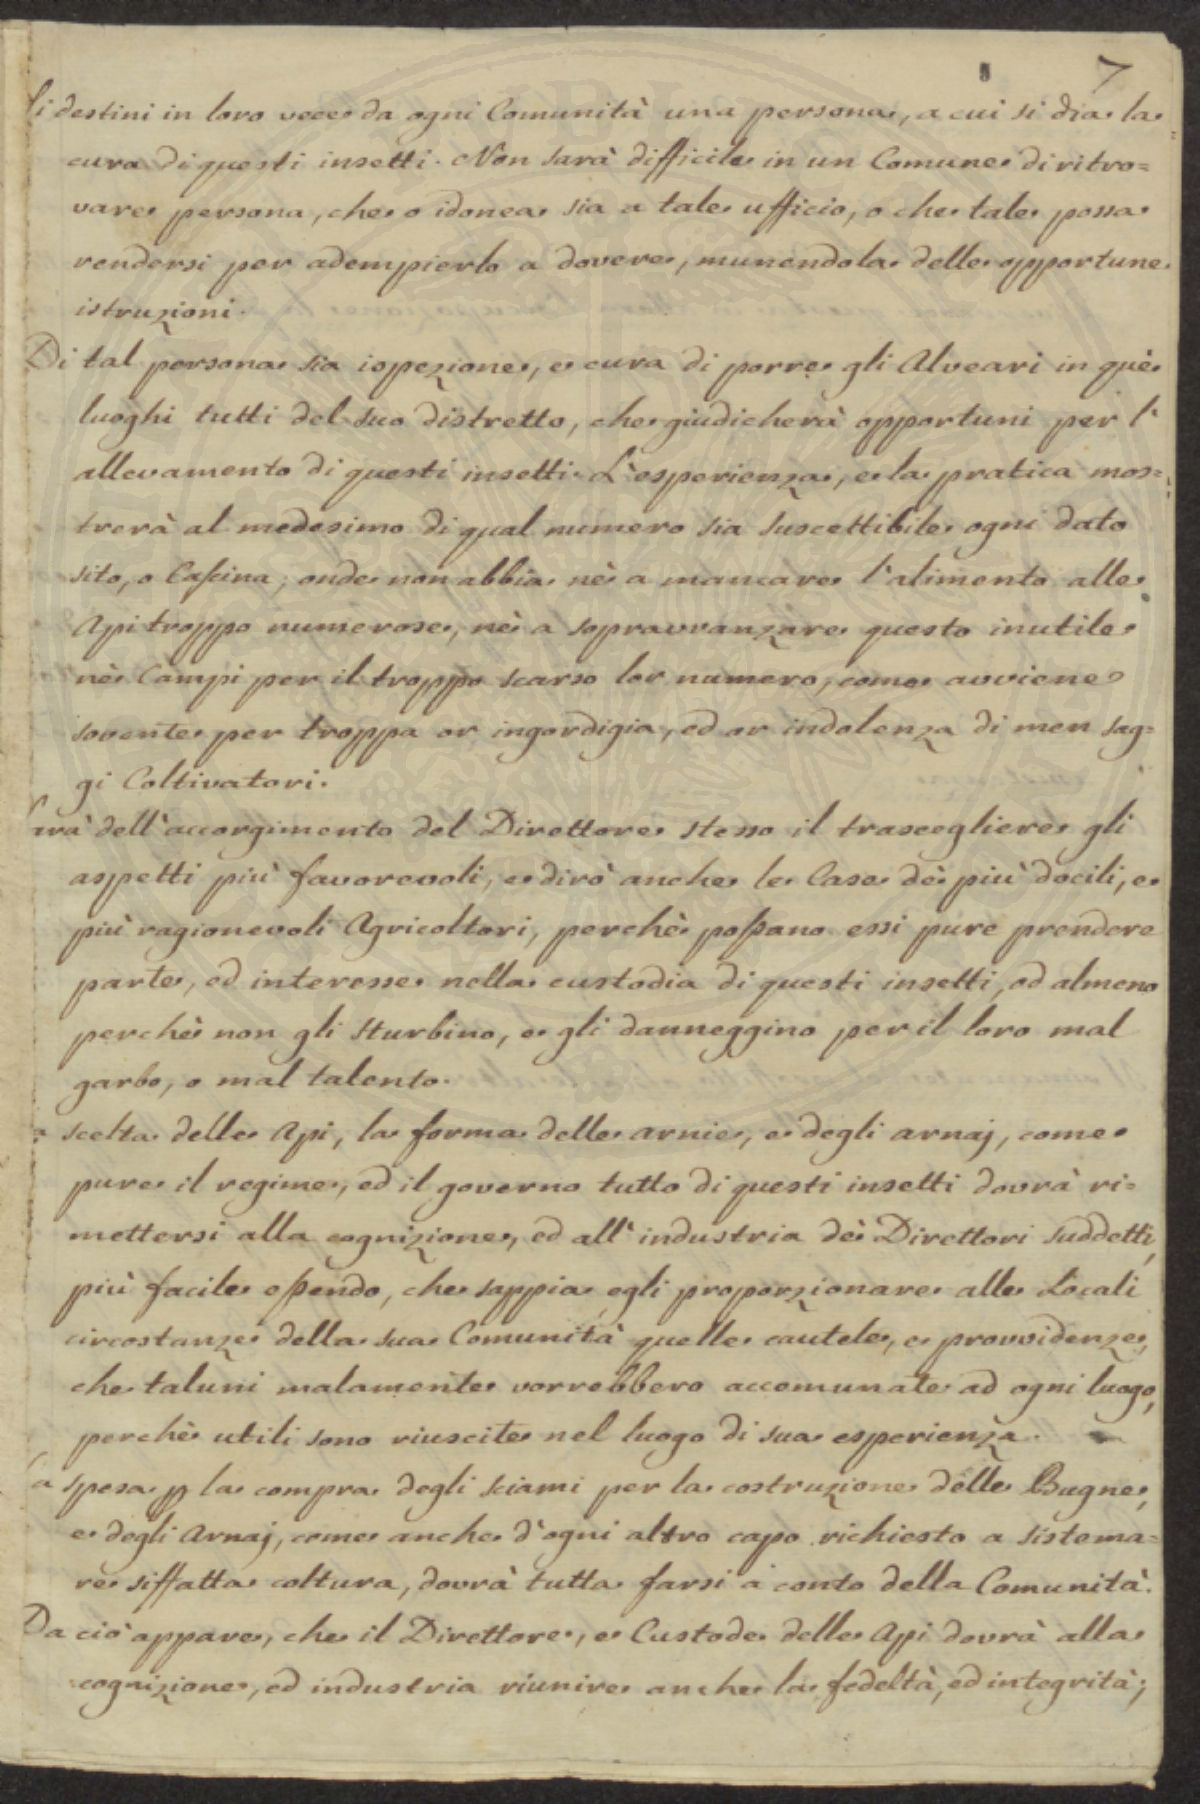 7
Si destini in loro vece da ogni Comunità una persona, a cui si dia la
cura di questi insetti. Non sarà difficile in un Comune di ritro=
vare persona, che o idonea sia a tale ufficio, o che tale possa
rendersi per adempierlo a dovere, munendola delle opportune
istruzioni.
Di tal persona sia ispezione, e cura di porre gli Alveari in què
luoghi tutti del suo distretto, che giudicherà opportuni per l'
allevamento di questi insetti. L'esperienza, e la pratica mos=
trerà al medesimo di qual numero sia suscettibile ogni dato
sito, o Casina, onde non abbia nè a mancare l'alimento alle
Api troppo numerose, nè a sopravvanzare questo inutile
nè Campi per il troppo scarso lor numero, come avviene
sovente per troppa or ingordigia, ed or indolenza di men sag=
gi Coltivatori.
Sarà dell'accorgimento del Direttore stesso il trascegliere gli
aspetti più favorevoli, e dirò anche le Case dè più docili, e
più ragionevoli Agricoltori, perchè possano essi pure prendere
parte, ed interesse nella custodia di questi insetti, ed almeno
perchè non gli sturbino, e gli danneggino per il loro mal
garbo, o mal talento.
scelta delle Api, la forma delle arnie, e degli arnaj, come
pure il regime, ed il governo tutto di questi insetti dovrà ri=
mettersi alla cognizione, ed all'industria dè Direttori suddetti,
più facile essendo, che sappia egli proporzionare alle Locali
circostanze della sua Comunità quelle cautele, e provvidenze,
che taluni malamente vorrebbero accomunate ad ogni luogo,
perchè utili sono riuscite nel luogo di sua esperienza.
La spesa p la compra degli sciami per la costruzione delle Bugne,
e degli Arnaj, come anche d'ogni altro capo richiesto a sistema=
re siffatta coltura, dovrà tutta farsi a conto della Comunità.
Da ciò appare, che il Direttore, e Custode delle Api dovrà alla
cognizione, ed industria riunire anche la fedeltà, ed integrità;